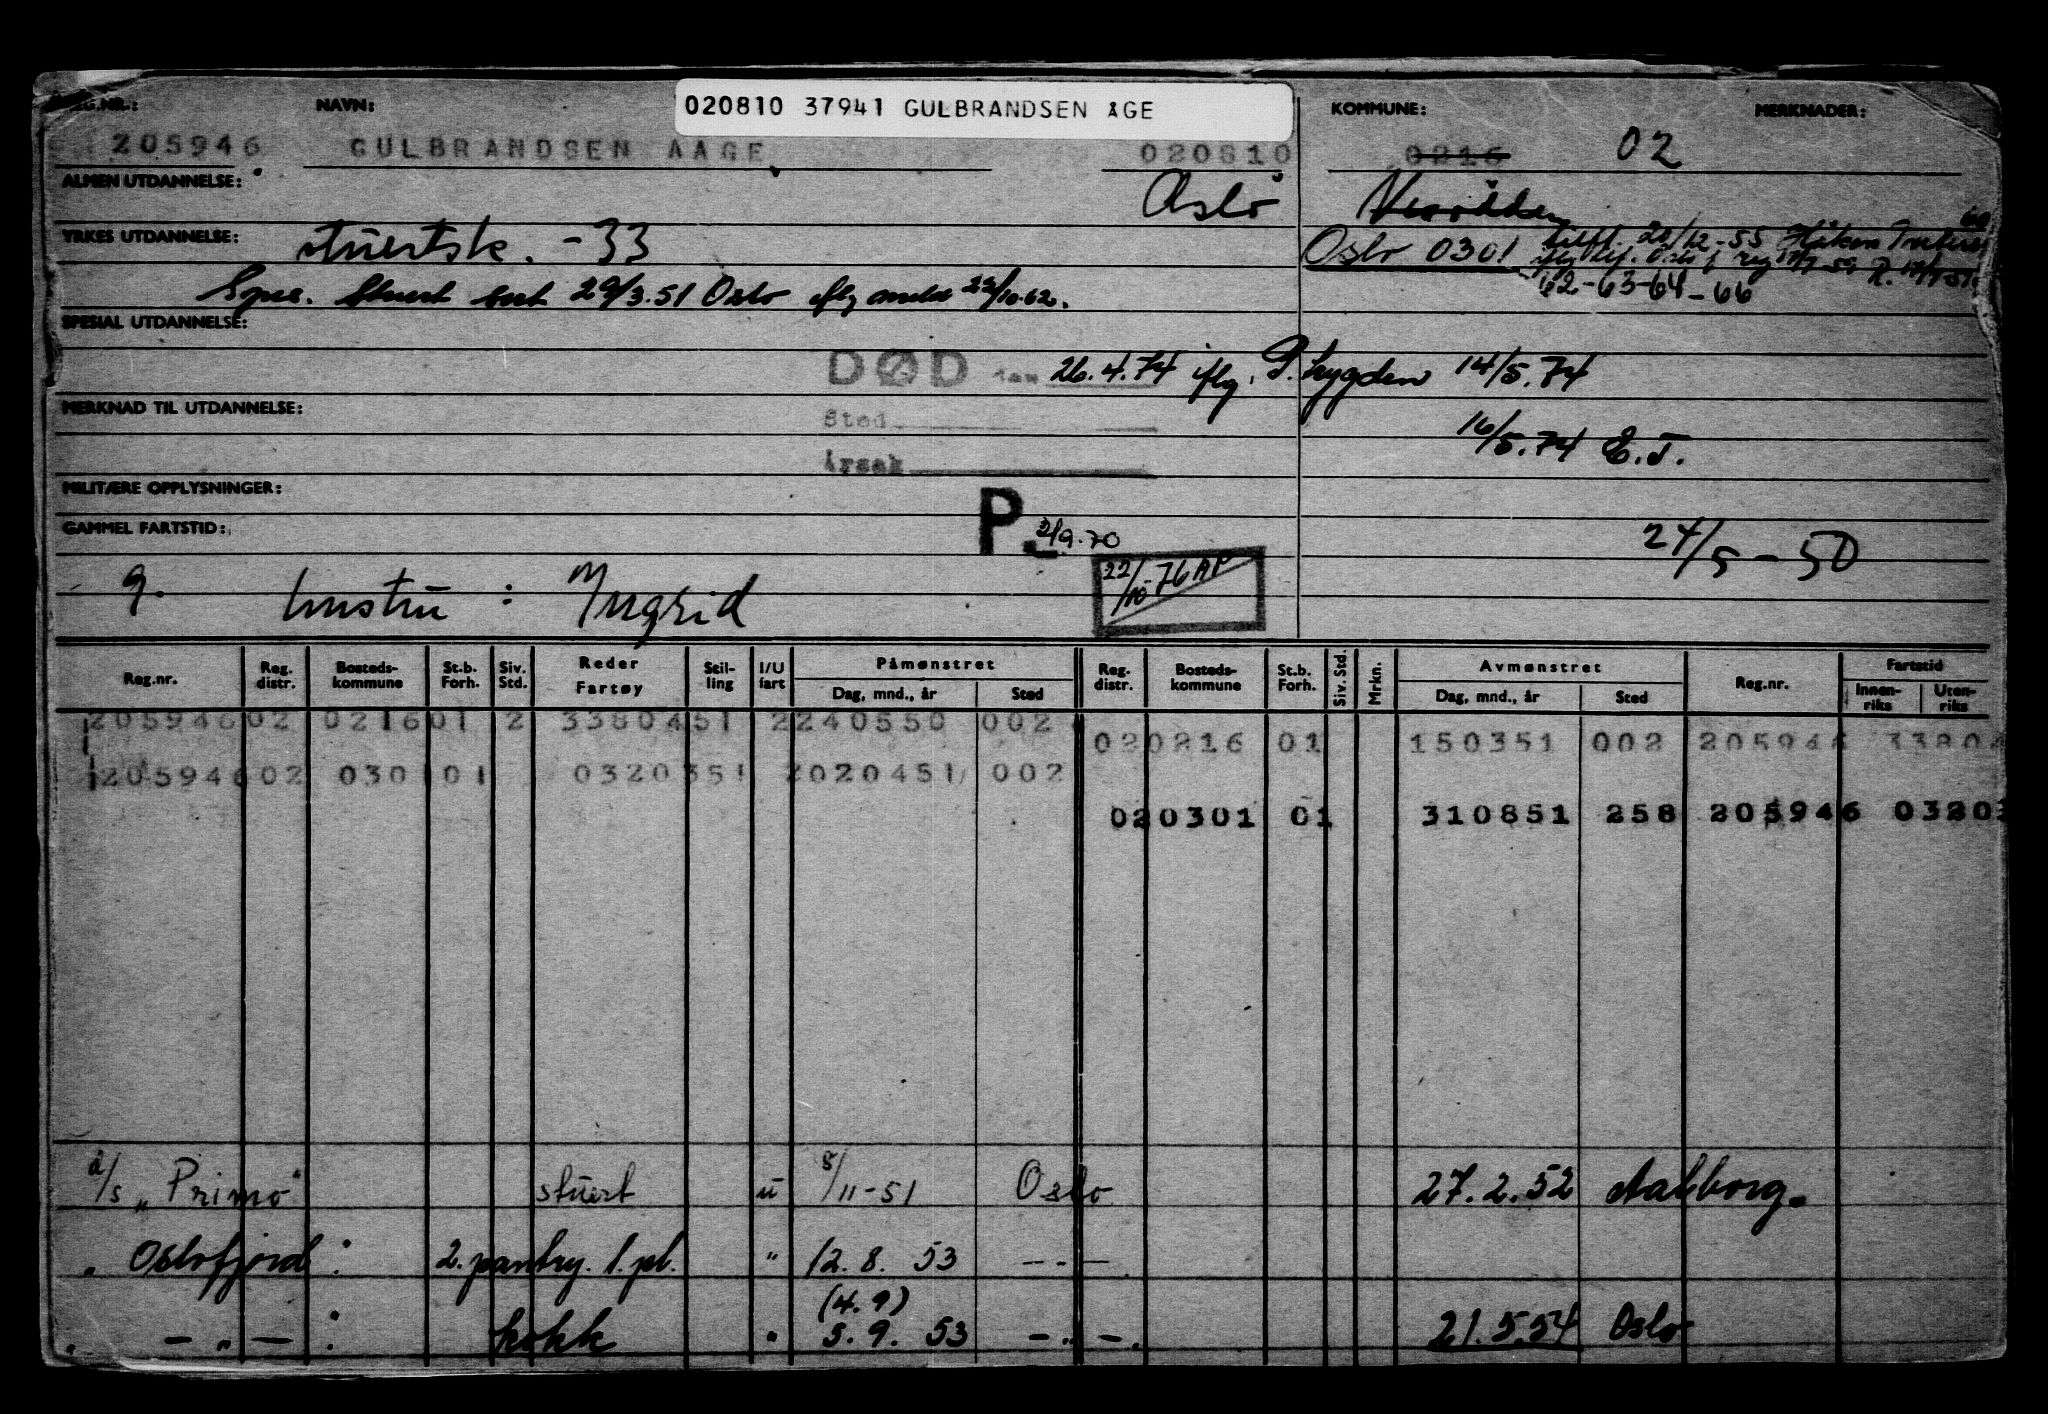 020810 37941 GULBRANDSEN ÅGE
REG.NR.: NAVN: KOMMUNE: MERKNADER:
205946 GULBRANDSEN AAGE 020810 0216 02
ALMEN UTDANNELSE: Oslo
YRKES UTDANNELSE: stuertsk. -33 Oslo 0301
Spes. Stuert sert 29/3.51 Oslo iflg meld 22/10.62.
62-63-64-66
SPESIAL UTDANNELSE:
DØD den 26.4.74 iflg. P. trygden 14/5.74
MERKNAD TIL UTDANNELSE: Sted 16/5.74 E.T.
Årsak
MILITÆRE OPPLYSNINGER: P.
GAMMEL FARTSTID: 2/9.70 24/5-50
g. hustru : Ingrid 22/10-76 AP
Reg.nr. Reg. distr. Bosteds-kommune St.b. Forh. Siv. Std. Reder Fartøy Stil-ling I/U fart Påmønstret Dag, mnd., år Sted Reg. distr. Bosteds-kommune St.b. Forh. Siv. Std. Mrkn. Avmønstret Dag, mnd., år Sted Reg.nr. Fartstid Innen-riks Uten-riks
205946 02 0216 01 2 3380451 2 240550 002
02 0216 01 150351 002 205946 33804
205946 02 0301 01 0320351 2 020451 002
02 0301 01 310851 258 205946 0320
d/s "Primo" stuert u 8/11-51 Oslo 27.2.52 Aalborg.
" Oslofjord : 2. pantry. 1. pl. " 12. 8. 53 -"-
(4.9)
" -"- : kokk " 5. 9. 53 -"-. 21.5.54 Oslo